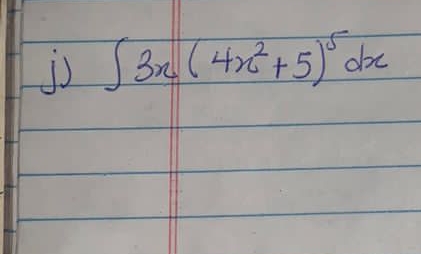 j) ∫3x(4x²+5)⁵ dx